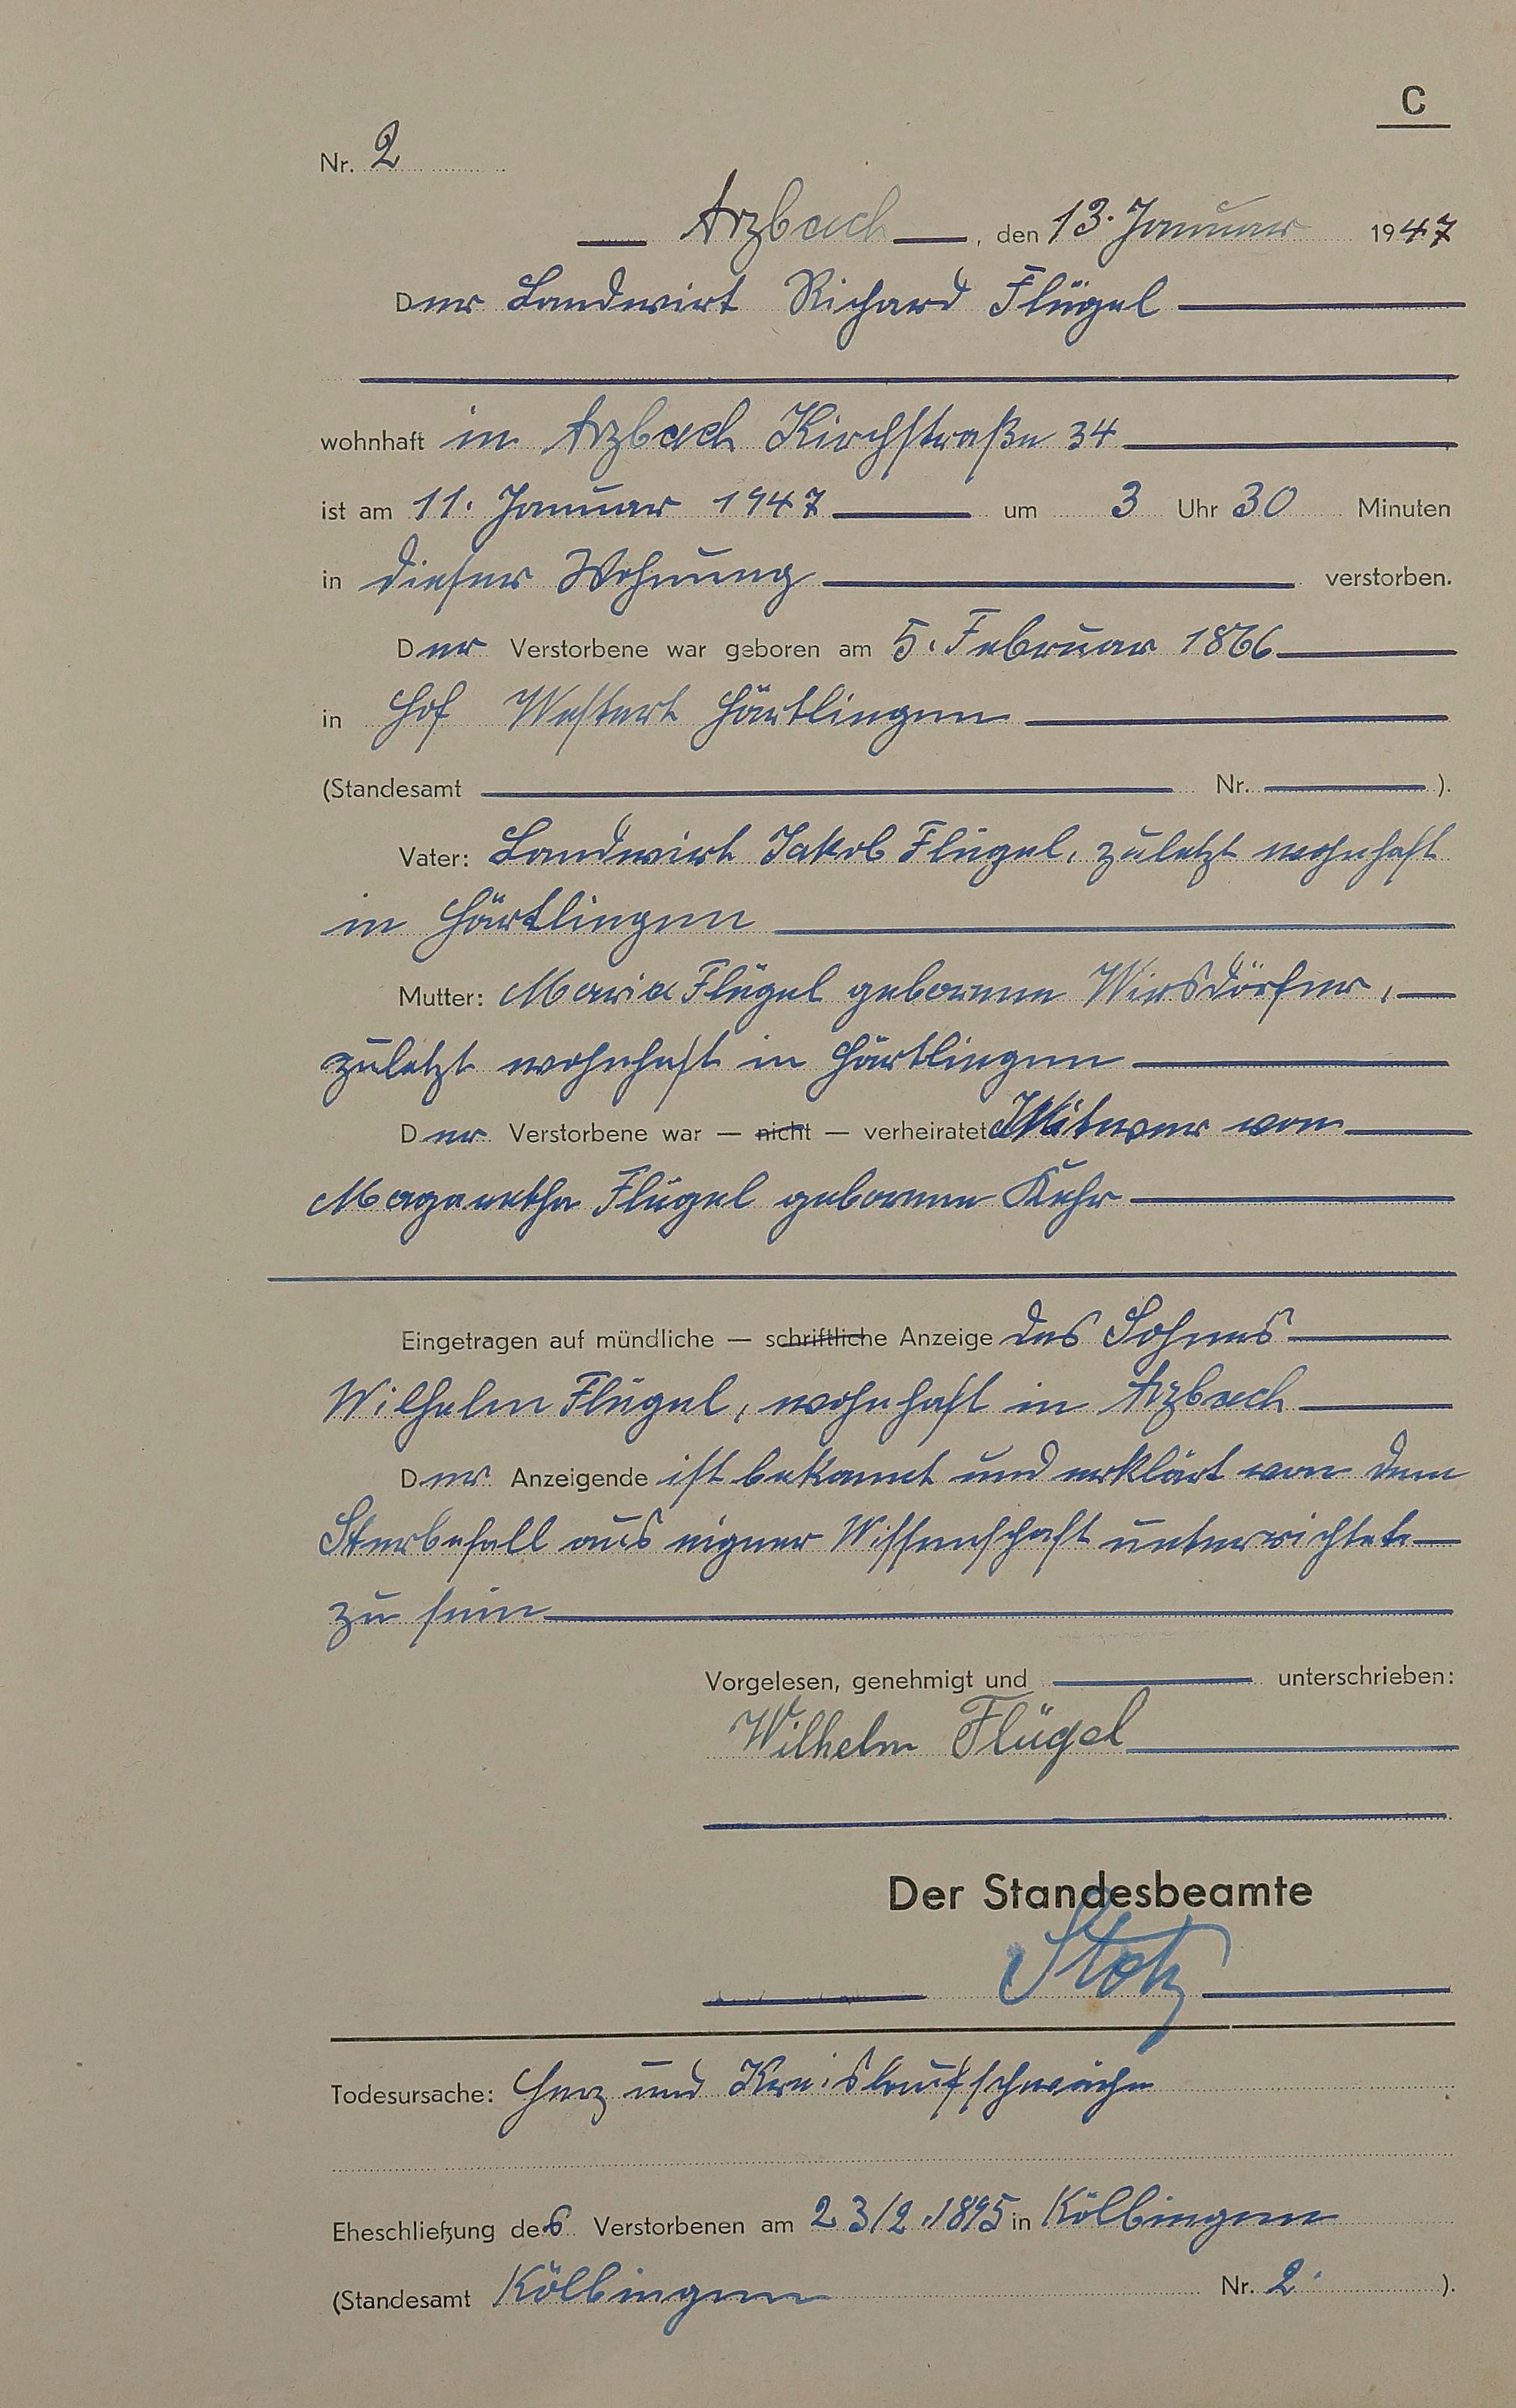 C
Nr. 2
Arzbach, den 13. Januar 1947
Der Landwirt Richard Flügel
wohnhaft in Arzbach Kirchstraße 34
ist am 11. Januar 1947 um 3 Uhr 30 Minuten
in dieser Wohnung verstorben.
Der Verstorbene war geboren am 5. Februar 1866
in Hof Westert Härtlingen
(Standesamt Nr. ).
Vater: Landwirt Jakob Flügel, zuletzt wohnhaft
in Härtlingen
Mutter: Maria Flügel geborene Wirsdörfer,
zuletzt wohnhaft in Härtlingen
Der Verstorbene war — nicht — verheiratet Witwer von
Magaretha Flügel geborene Kehr
Eingetragen auf mündliche — schriftliche Anzeige des Sohnes
Wilhelm Flügel, wohnhaft in Arzbach
Der Anzeigende ist bekannt und erklärt von dem
Sterbefall aus eigner Wissenschaft unterrichtet
zu sein
Vorgelesen, genehmigt und unterschrieben:
Wilhelm Flügel
Der Standesbeamte
Stotz
Todesursache: Herz und Kreislaufschwäche
Eheschließung des Verstorbenen am 23/2.1895 in Kölbingen
(Standesamt Kölbingen Nr. 2 ).